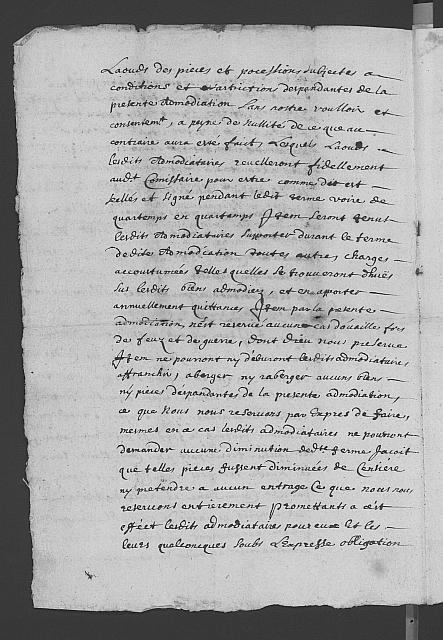 Laouds des pieces et pocestions subjectes a
conditions et d'artrictions despandantes de la
presente Admodiation sans nostre voulloir et
consentemt, a peyne de nullité de ce que au
contraire aura esté faict, Lesquels Laouds
lesdits Admodiataires revelleront fidellement
audt Comissaire pour estre comme dit est
sellés et signé pendant ledit terme voire de
quartemps en quartemps Item seront tenus
lesdits Admodiataires supporter durant le terme
de dite Admodiation toutes autres charges
accoustumées telles quelles se trouveront dheues
sus lesdits biens admodiez, et en apporter
annuellement quittances, Item par la presente
admodiation, n'est reservé aucuns cas d'ouailles fors
de feuz et de guerre, dont Dieu nous preserve
Item ne pouront ny debvront lesdits admodiataires
affranchir, aberger, ny raberger aucuns biens
ny pieces despandantes de la presente admodiation,
ce que Nous nous reservons par Expres de faire,
mesmes en ce cas lesdits admodiataires ne pourront
demander aucune diminution de dte ferme Jacoit
que telles pieces fussent diminuées de Censiere
ny pretendre a aucun entrage Ce que nous nous
reservons entierement Promettants a cest
effect lesdits admodiataires pour eux Et les
leurs quelconques soubs L'Expresse obligation